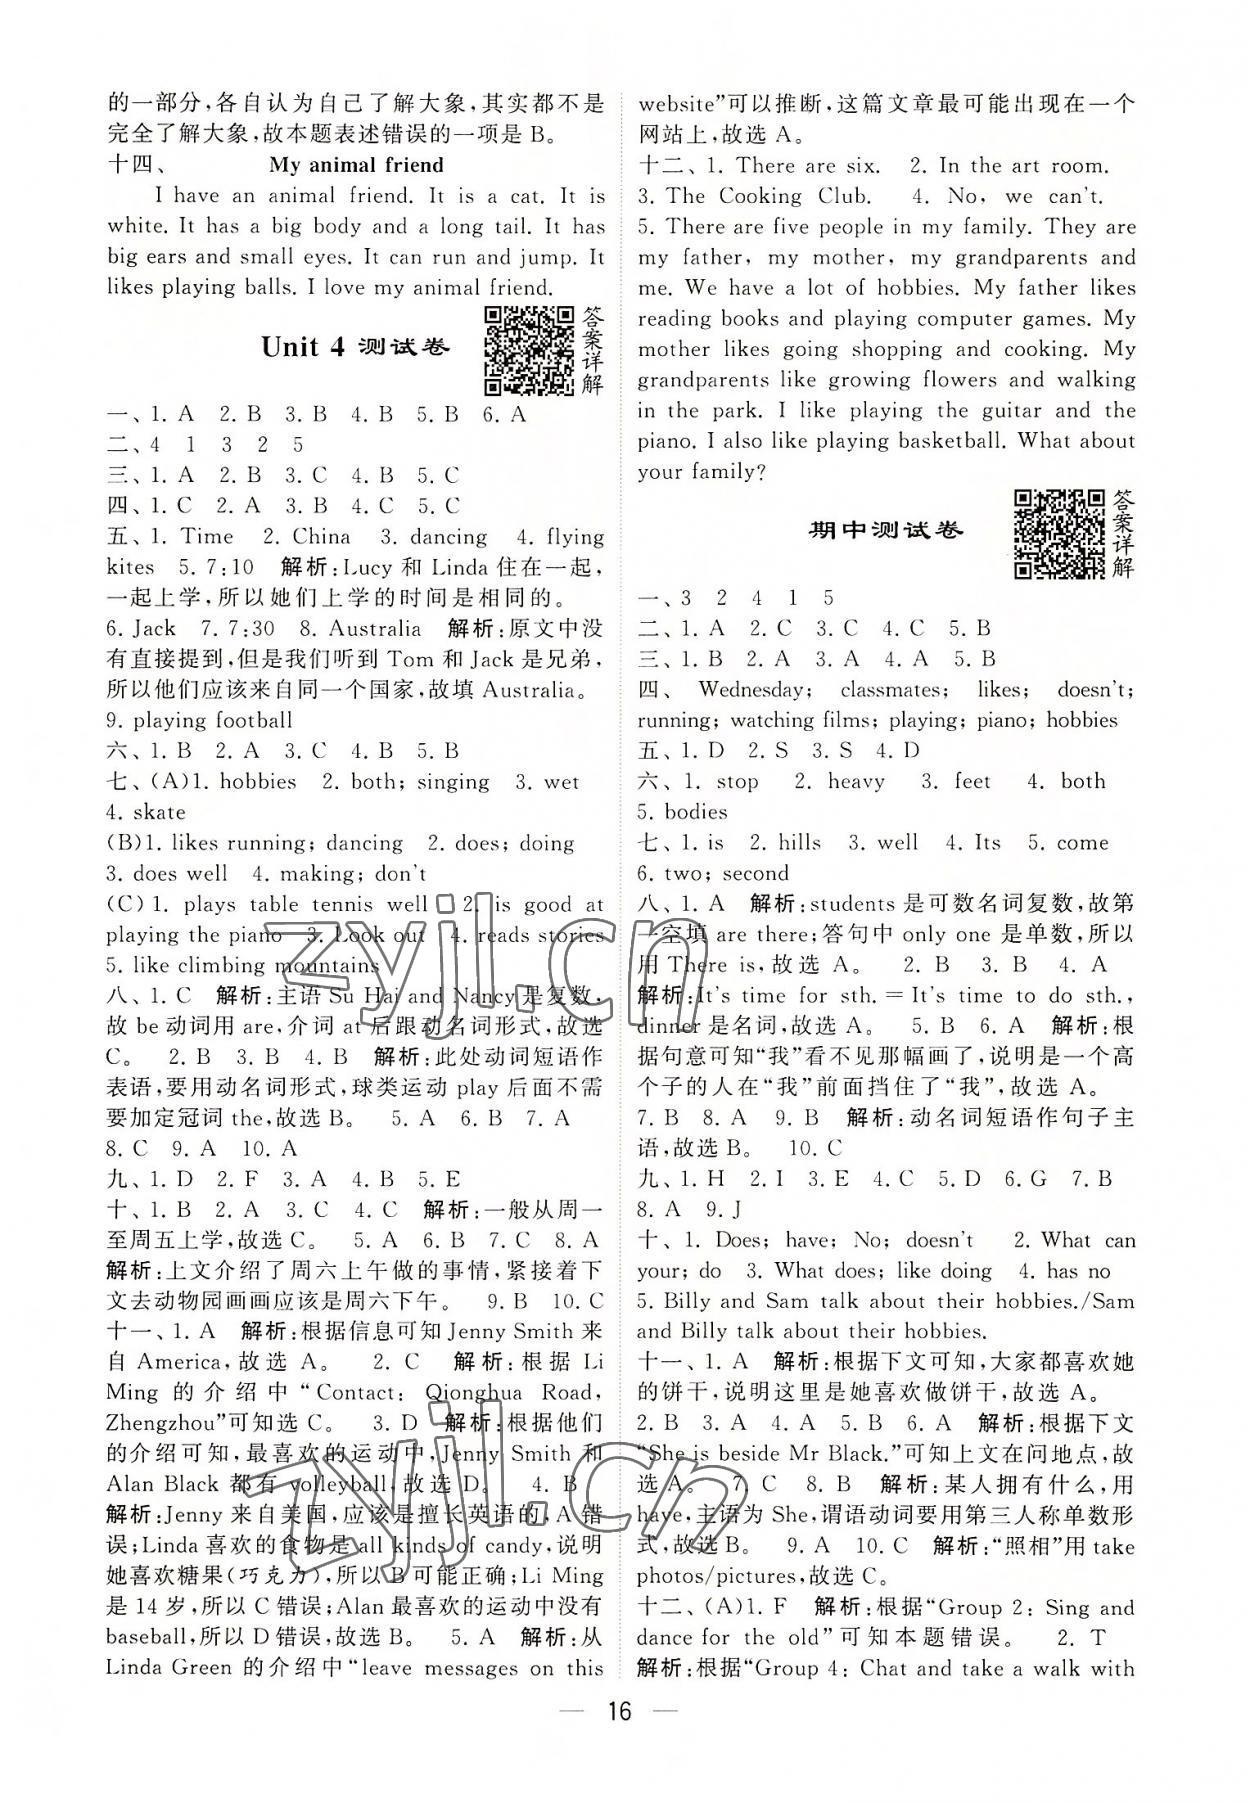 的一部分,各自认为自己了解大象,其实都不是
完全了解大象,故本题表述错误的一项是 B。
十四、 My animal friend
I have an animal friend. It is a cat. It is
white. It has a big body and a long tail. It has
big ears and small eyes. It can run and jump. It
likes playing balls. I love my animal friend.
Unit 4 测试卷
答案详解
一、1. A 2. B 3. B 4. B 5. B 6. A
二、4 1 3 2 5
三、1. A 2. B 3. C 4. B 5. C
四、1. C 2. A 3. B 4. C 5. C
五、1. Time 2. China 3. dancing 4. flying
kites 5. 7:10 解析:Lucy 和 Linda 住在一起,
一起上学,所以她们上学的时间是相同的。
6. Jack 7. 7:30 8. Australia 解析:原文中没
有直接提到,但是我们听到 Tom 和 Jack 是兄弟,
所以他们应该来自同一个国家,故填 Australia。
9. playing football
六、1. B 2. A 3. C 4. B 5. B
七、(A)1. hobbies 2. both; singing 3. wet
4. skate
(B)1. likes running; dancing 2. does; doing
3. does well 4. making; don't
(C) 1. plays table tennis well 2. is good at
playing the piano 3. Look out 4. reads stories
5. like climbing mountains
八、1. C 解析:主语 Su Hai and Nancy 是复数,
故 be 动词用 are,介词 at 后跟动名词形式,故选
C。 2. B 3. B 4. B 解析:此处动词短语作
表语,要用动名词形式,球类运动 play 后面不需
要加定冠词 the,故选 B。 5. A 6. B 7. A
8. C 9. A 10. A
九、1. D 2. F 3. A 4. B 5. E
十、1. B 2. A 3. C 4. C 解析:一般从周一
至周五上学,故选 C。 5. A 6. B 7. C 8. A
解析:上文介绍了周六上午做的事情,紧接着下
文去动物园画画应该是周六下午。 9. B 10. C
十一、1. A 解析:根据信息可知 Jenny Smith 来
自 America,故选 A。 2. C 解析:根据 Li
Ming 的介绍中“Contact: Qionghua Road,
Zhengzhou”可知选 C。 3. D 解析:根据他们
的介绍可知,最喜欢的运动中,Jenny Smith 和
Alan Black 都有 volleyball,故选 D。 4. B
解析:Jenny 来自美国,应该是擅长英语的,A 错
误;Linda 喜欢的食物是 all kinds of candy,说明
她喜欢糖果(巧克力),所以 B 可能正确;Li Ming
是 14 岁,所以 C 错误;Alan 最喜欢的运动中没有
baseball,所以 D 错误,故选 B。 5. A 解析:从
Linda Green 的介绍中“leave messages on this
website”可以推断,这篇文章最可能出现在一个
网站上,故选 A。
十二、1. There are six. 2. In the art room.
3. The Cooking Club. 4. No, we can't.
5. There are five people in my family. They are
my father, my mother, my grandparents and
me. We have a lot of hobbies. My father likes
reading books and playing computer games. My
mother likes going shopping and cooking. My
grandparents like growing flowers and walking
in the park. I like playing the guitar and the
piano. I also like playing basketball. What about
your family?
期中测试卷
答案详解
一、3 2 4 1 5
二、1. A 2. C 3. C 4. C 5. B
三、1. B 2. A 3. A 4. A 5. B
四、 Wednesday; classmates; likes; doesn't;
running; watching films; playing; piano; hobbies
五、1. D 2. S 3. S 4. D
六、1. stop 2. heavy 3. feet 4. both
5. bodies
七、1. is 2. hills 3. well 4. Its 5. come
6. two; second
八、1. A 解析:students 是可数名词复数,故第
一空填 are there;答句中 only one 是单数,所以
用 There is,故选 A。 2. B 3. B 4. A
解析:It's time for sth. = It's time to do sth.,
dinner 是名词,故选 A。 5. B 6. A 解析:根
据句意可知“我”看不见那幅画了,说明是一个高
个子的人在“我”前面挡住了“我”,故选 A。
7. B 8. A 9. B 解析:动名词短语作句子主
语,故选 B。 10. C
九、1. H 2. I 3. E 4. C 5. D 6. G 7. B
8. A 9. J
十、1. Does; have; No; doesn't 2. What can
your; do 3. What does; like doing 4. has no
5. Billy and Sam talk about their hobbies./Sam
and Billy talk about their hobbies.
十一、1. A 解析:根据下文可知,大家都喜欢她
的饼干,说明这里是她喜欢做饼干,故选 A。
2. B 3. A 4. A 5. B 6. A 解析:根据下文
“She is beside Mr Black.”可知上文在问地点,故
选 A。 7. C 8. B 解析:某人拥有什么,用
have,主语为 She,谓语动词要用第三人称单数形
式,故选 B。 9. A 10. C 解析:“照相”用 take
photos/pictures,故选 C。
十二、(A)1. F 解析:根据“Group 2: Sing and
dance for the old”可知本题错误。 2. T
解析:根据“Group 4: Chat and take a walk with
16
zyjl.cn
zyjl.cn